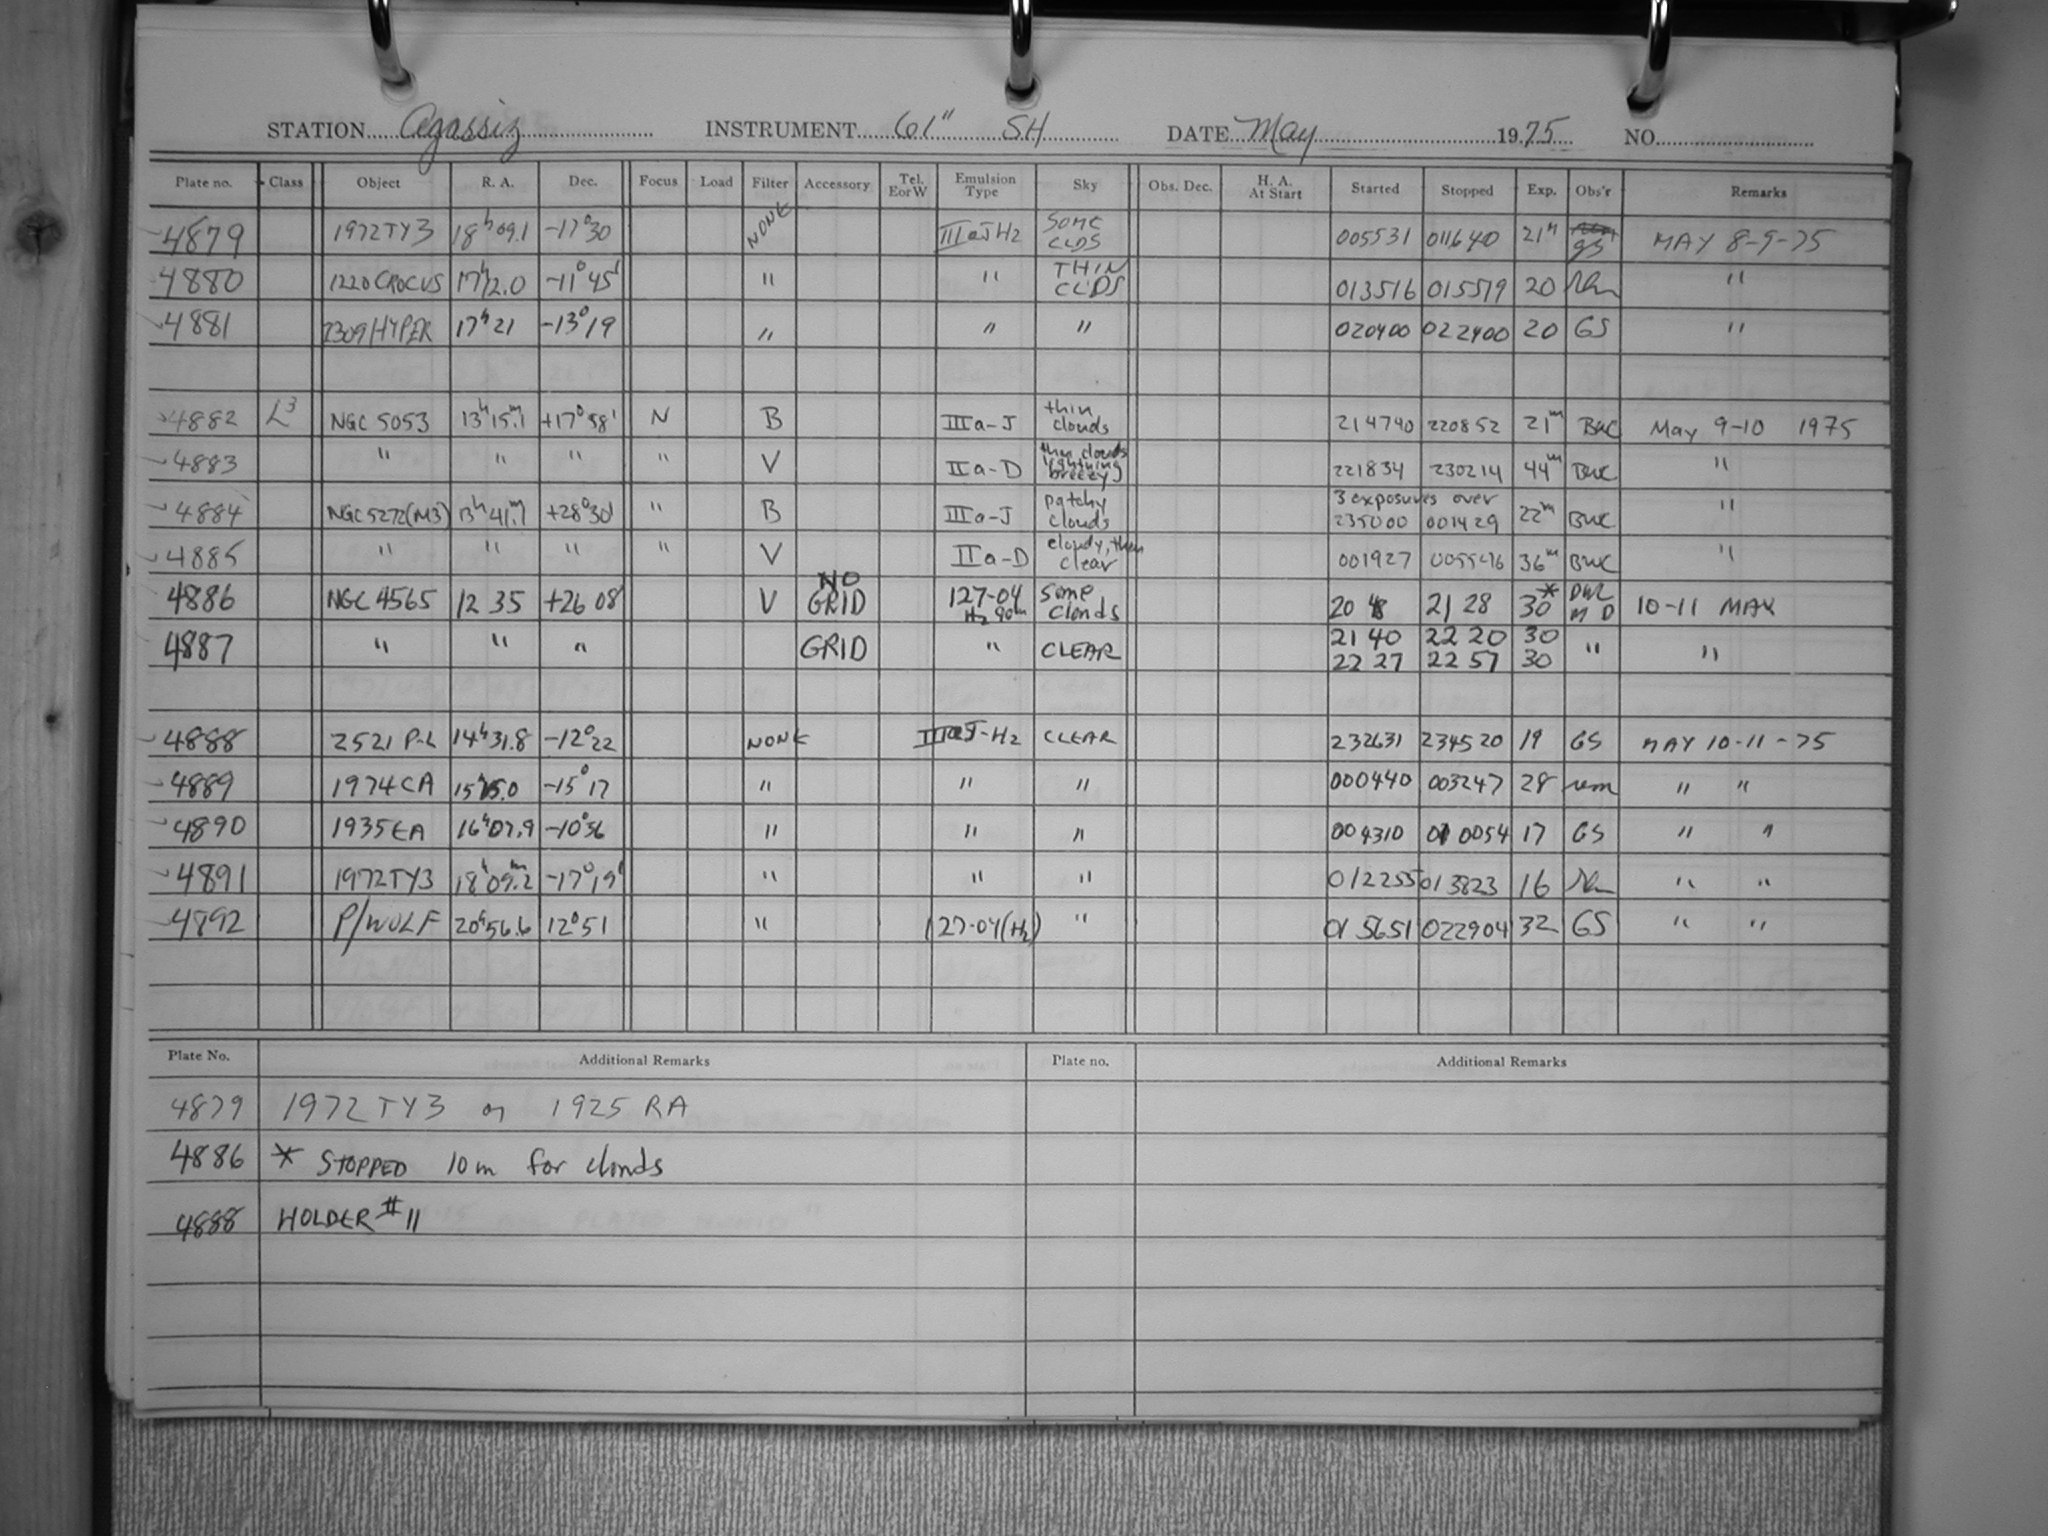 STATION Agassiz INSTRUMENT 61" SH DATE May 1975 NO.
Plate no. Class Object R. A. Dec. Focus Load Filter Accessory Tel. E or W Emulsion Type Sky Obs. Dec. H. A. At Start Started Stopped Exp. Obs'r Remarks
4879 1972TY3 18h09.1 -17°30 NONE IIIaJH2 SOME CLDS 005531 011640 21m GS MAY 8-9-75
4880 1220 CROCUS 17h12.0 -11°45' " " THIN CLDS 013516 015519 20 "
4881 2309 HYPER 17h21 -13°19 " " " 020400 022400 20 GS "
4882 L3 NGC 5053 13h15m.1 +17°58' N B IIIa-J thin clouds 214740 220852 21m BWC May 9-10 1975
4883 " " " " V IIa-D thin clouds lightning breezy 221834 230214 44m BWC "
4884 NGC5272(M3) 13h41m.1 +28°30' " B IIIa-J patchy clouds 3 exposures over 235000 001429 22m BWC "
4885 " " " " V IIa-D cloudy, then clear 001927 005546 36m BWC "
4886 NGC 4565 12 35 +26 08' V NO GRID 127-04 H2 90m some clouds 20 48 21 28 30* MD 10-11 MAY
4887 " " " GRID " CLEAR 21 40 22 20 30 " "
22 27 22 57 30
4888 2521 P-L 14h31.8 -12°22 NONE IIIaJ-H2 CLEAR 232631 234520 19 GS MAY 10-11-75
4889 1974CA -15°17 " " " 000440 003247 28 rem " "
4890 1935EA 16h07.9 -10°56 " " " 004310 010054 17 GS " "
4891 1972TY3 18h09m.2 -17°19' " " " 012255 013823 16 " "
4892 P/WOLF 20h56.6 12°51 " 127-04(H2) " 015651 022904 32 GS " "
Plate No. Additional Remarks Plate no. Additional Remarks
4879 1972TY3 or 1925 RA
4886 * STOPPED 10m for clouds
4888 HOLDER #11